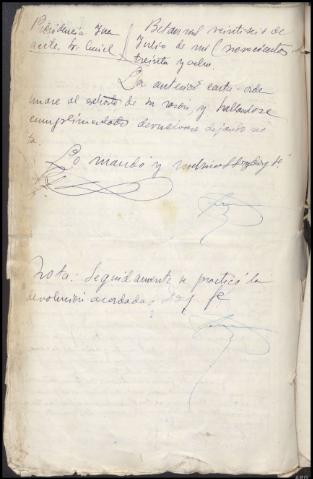 Providencia Juez
acctal. Sr.
Betanzos veintiseis de
Julio de mil novecientos
treinta y ocho.
Por anterior carta-orden
unase al de su razón, y hallandose
cumplimentado devuelvase dejando no
ta.
Lo mandó y rubrica S.Sª doy fe
Nota: Seguidamente se practicó la
devolución acordada; doy fé